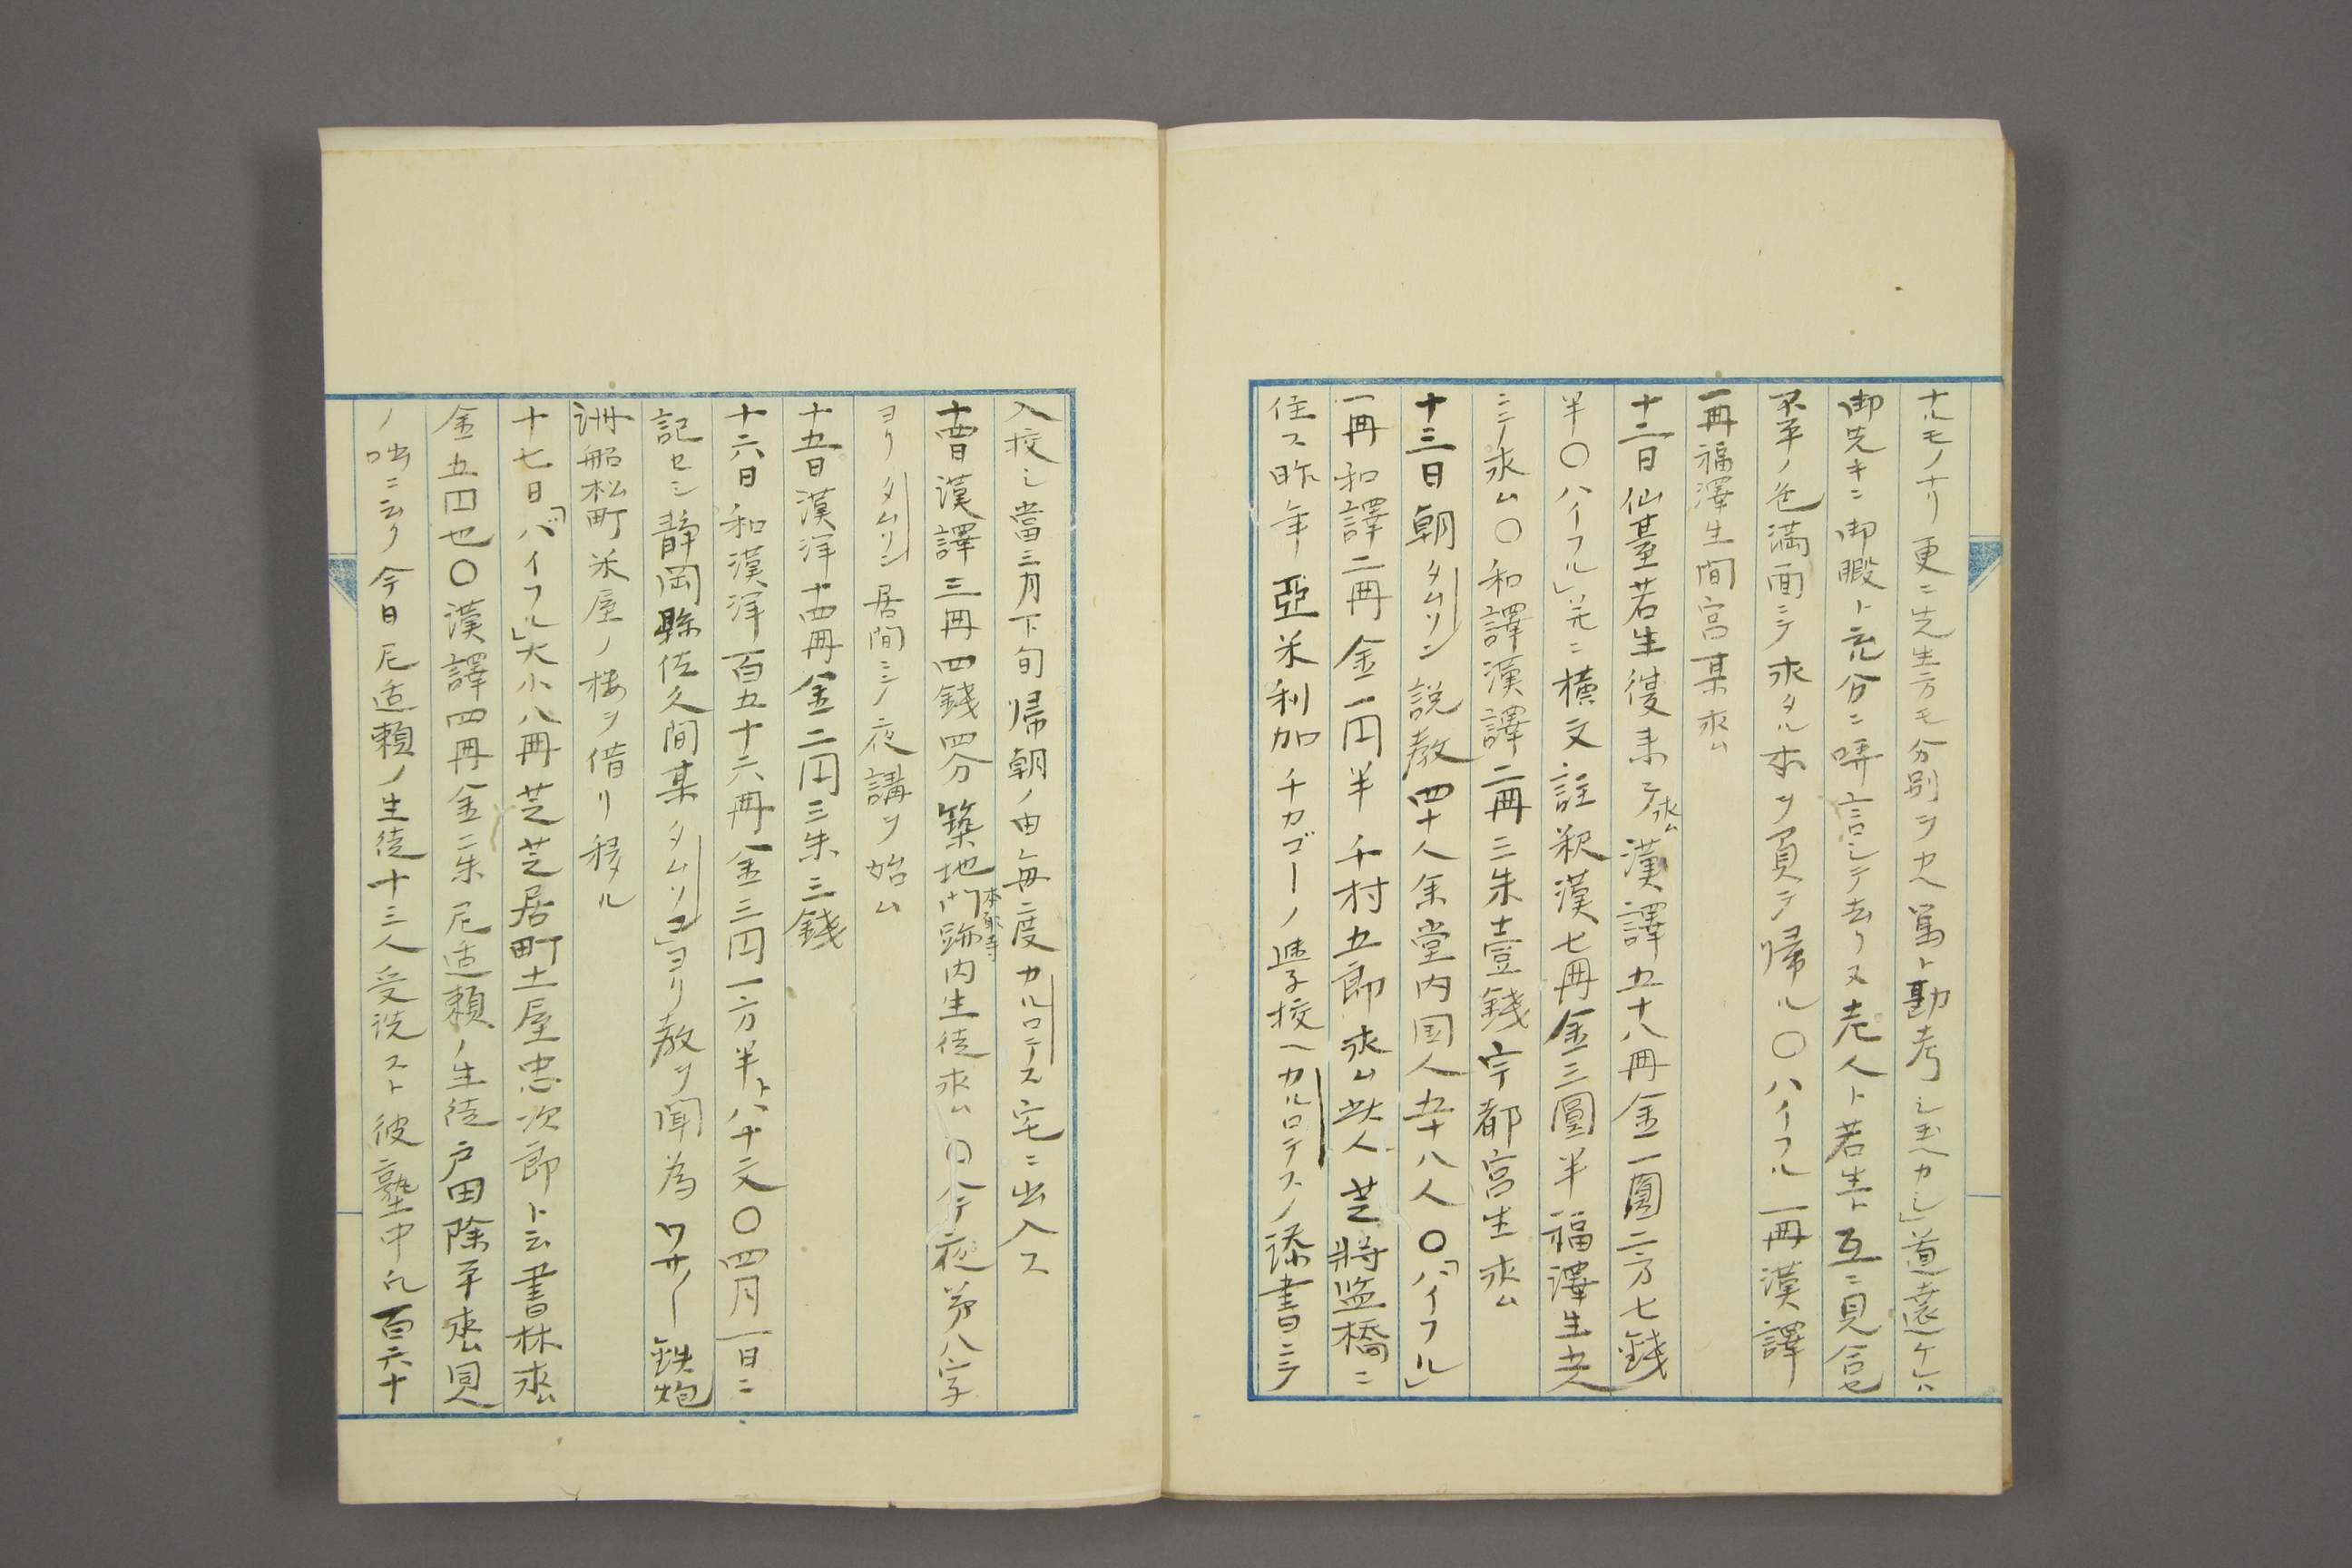 ナルモノナリ更ニ先生方モ分別ヲカヘ篤ト勘考シ玉ヘカシ」道遠ケレハ
御先キニ御暇ト充分ニ嘩言シテ去リ又老人ト若生ト互ニ見合セ
不平ノ色満面ニシテ求タル本ヲ負テ帰ル〇ハイフル一冊漢譯
一冊福澤生間宮某求ム
十二日仙臺若生復来テ求ム漢譯五十八冊金一圓二方七錢
半〇ハイフル」並ニ横文註釈漢七冊金三圓半福澤生老人
ニシテ求ム〇和譯漢譯二冊三朱壹錢宇都宮生求ム
十三日朝タムソン説教四十人余堂内国人五十八人〇「バイフル」
一冊和譯二冊金一円半千村五郎求ム此人芝將監橋ニ
住ス昨年亞米利加チカゴーノ学校ヘカルロテスノ添書ニテ
入校シ當三月下旬帰朝ノ由毎度カルロテス宅ニ出入ス
十四日漢譯三冊四錢四分築地門跡内本願寺生徒求ム〇今夜第八字
ヨリタムソン居間ニテ夜講ヲ始ム
十五日漢洋十四冊金二円三朱三錢
十六日和漢洋百五十六冊金三円一方半ト八十文〇四月一日ニ
記セシ静岡縣佐久間某タムソンヨリ教ヲ聞為ワサ〱鉄炮
洲船松町米屋ノ楼ヲ借リ移ル
十七日「バイフル」大小八冊芝芝居町土屋忠次郎ト云書林求ム
金五円也〇漢譯四冊金二朱尼适頼ノ生徒戸田除平求ム同人
ノ咄ニ云ク今日尼适頼ノ生徒十三人受洗スト彼塾中凡百六十